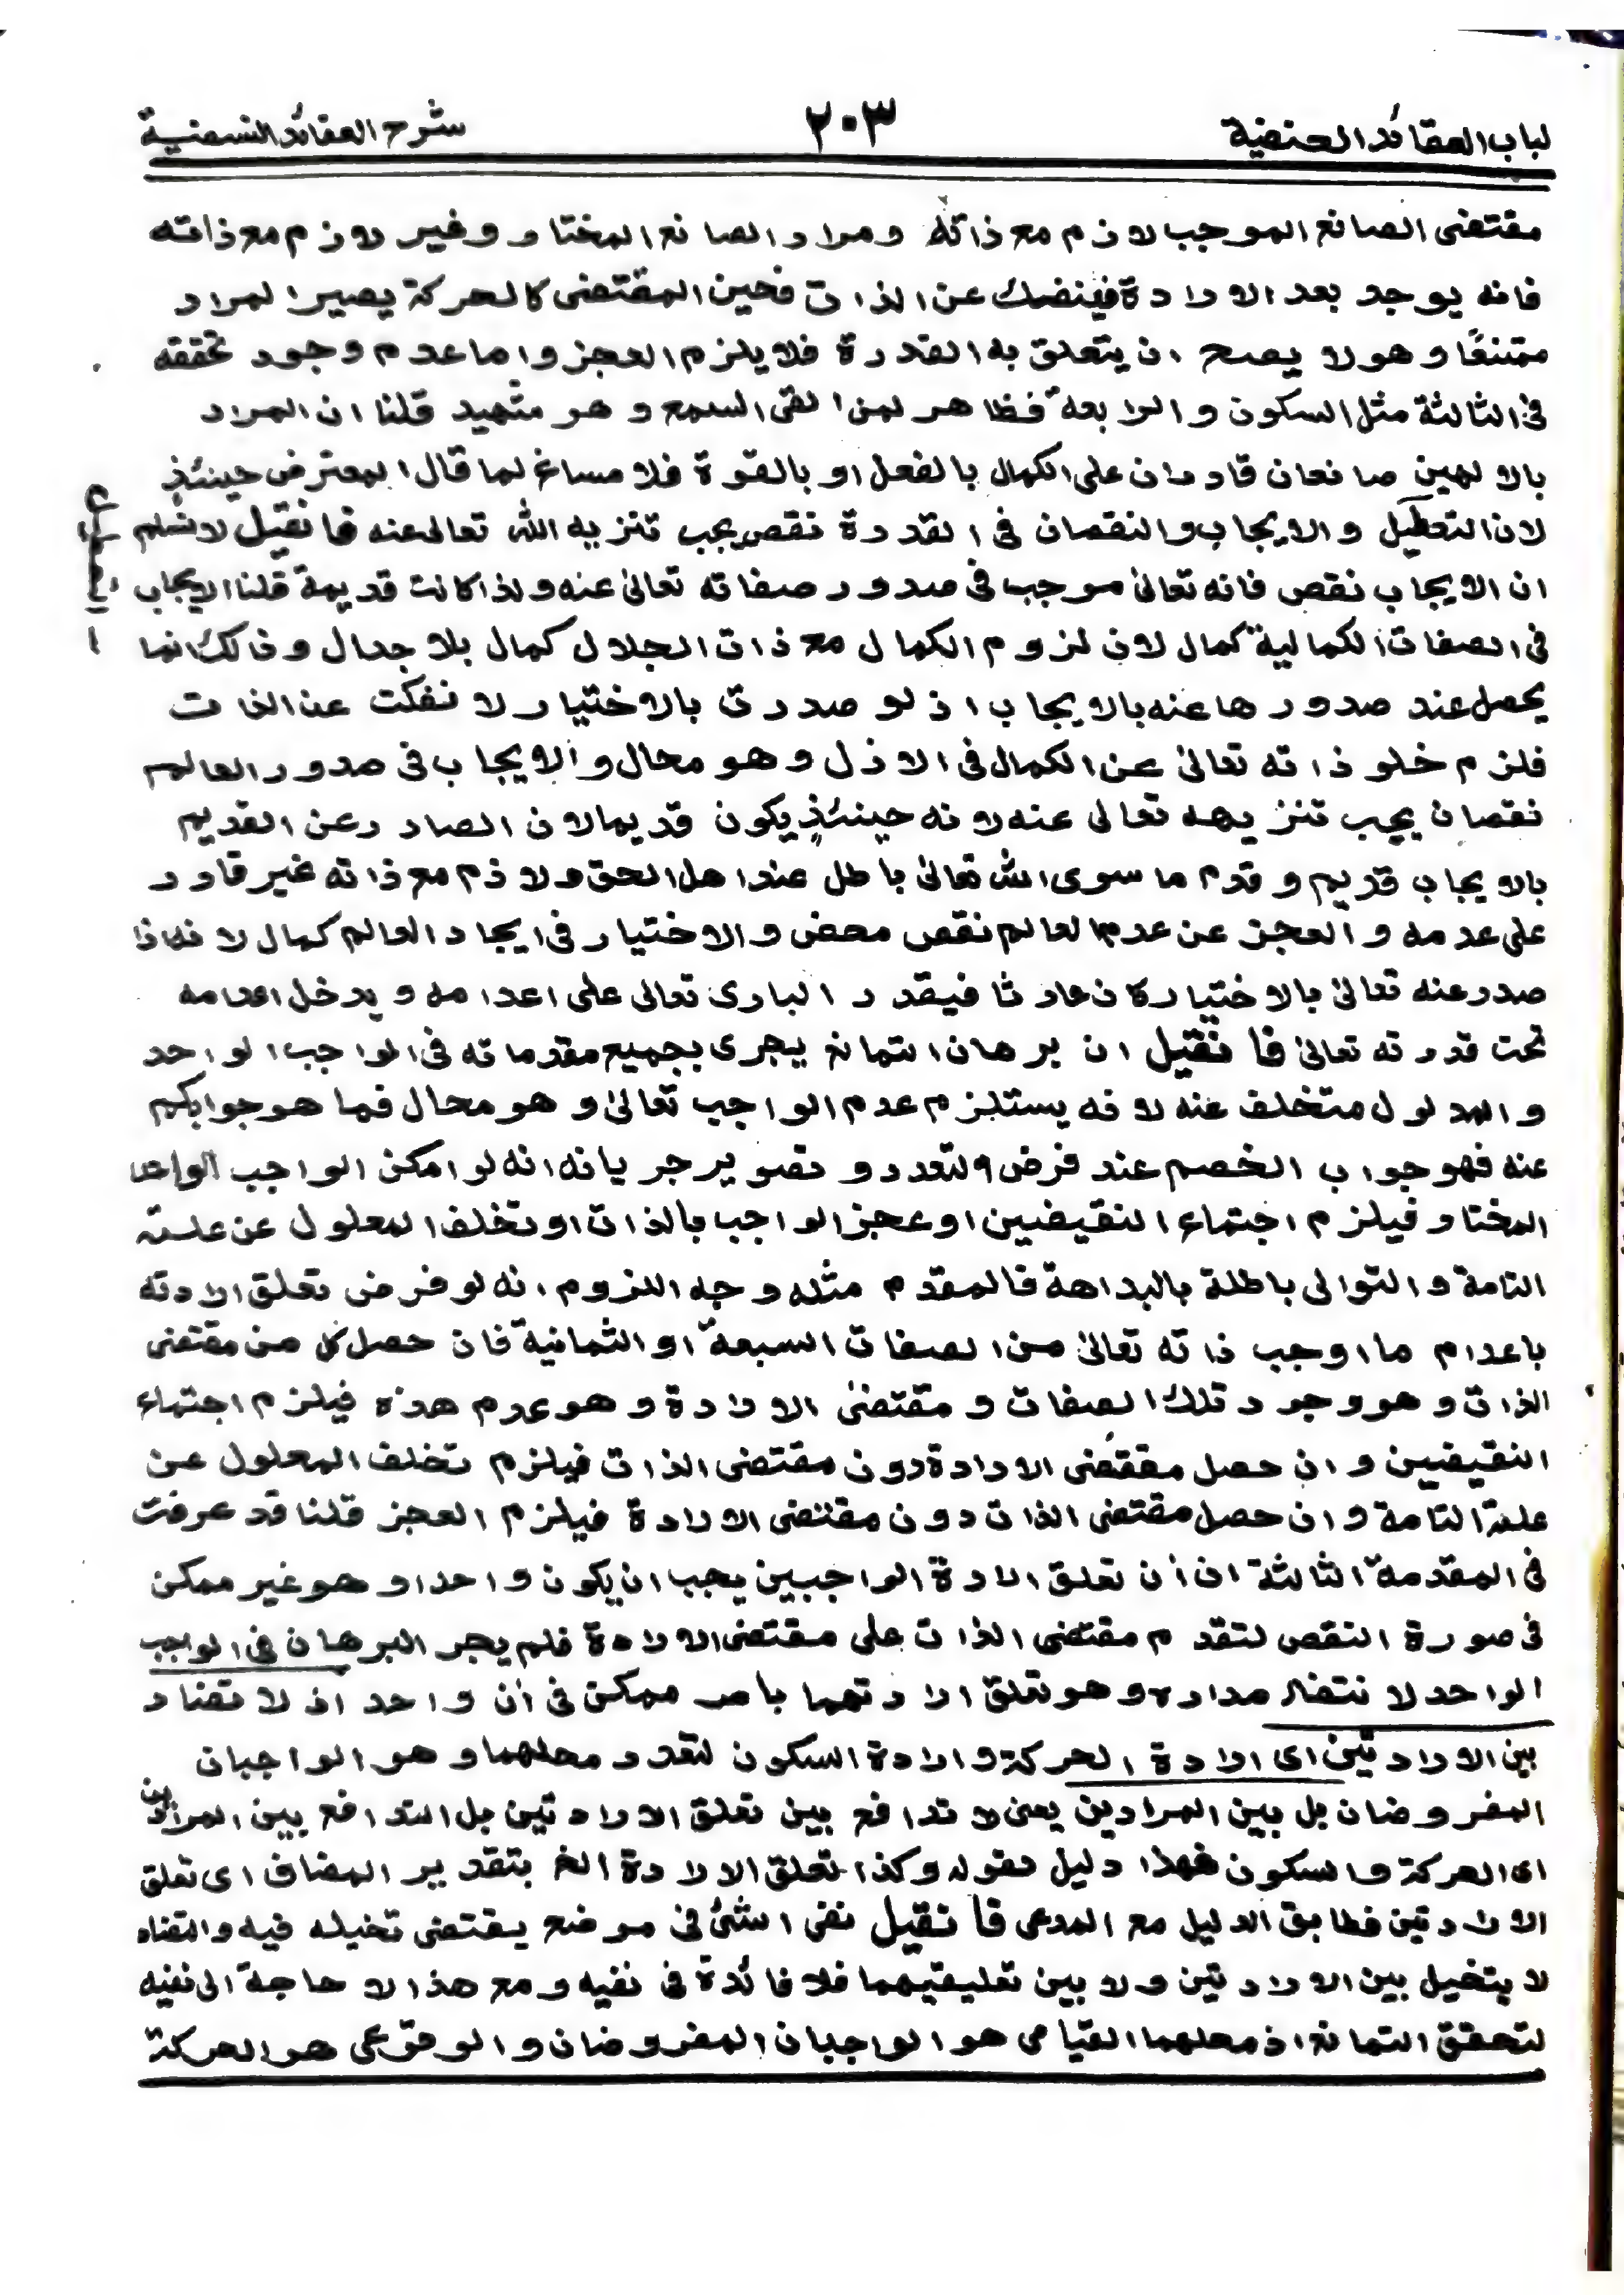 لباب العقائد الحنفية ٢٠٣ شرح العقائد النسفية
مقتضى الصانع الموجب لازم مع ذاته ومراد الصانع المختار وغير لازم مع ذاته
فانه يوجد بعد الارادة فينفك عن الذات فحين المقتضى كالحركة يصير المراد
ممتنعًا وهو لا يصح ان يتعلق به القدرة فلا يلزم العجز واما عدم وجود تحققه
فى الثالثة مثل السكون والرابعة فظاهر لمن القى السمع وهو شهيد قلنا ان المراد
بالالهين صانعان قادران على الكمال بالفعل او بالقوة فلا مساغ لما قال المعترض حينئذٍ
لان التعطيل والايجاب والنقصان فى القدرة نقص يجب تنزيه الله تعالى عنه فا نقيل لا نسلم
ان الايجاب نقص فانه تعالىٰ موجب فى صدور صفاته تعالىٰ عنه ولذا كانت قديمة قلنا الايجاب
فى الصفات الكمالية كمال لان لزوم الكمال مع ذات الجلال كمال بلا جدال وذالك انما
يحصل عند صدورها عنه بالايجاب اذ لو صدرت بالاختيار لا نفكت عن الذات
فلزم خلو ذاته تعالىٰ عن الكمال فى الازل وهو محال والايجاب فى صدور العالم
نقصان يجب تنزيهه تعالى عنه لانه حينئذٍ يكون قديما لان الصادر عن القديم
بالايجاب قديم وقدم ما سوى الله تعالىٰ باطل عند اهل الحق ولازم مع ذاته غير قادر
على عدمه والعجز عن عدم العالم نقص محض والاختيار فى ايجاد العالم كمال لانه اذا
صدر عنه تعالىٰ بالاختيار كان حادثا فيقدر البارى تعالى على اعدامه ويدخل اعدامه
تحت قدرته تعالىٰ فا نقيل ان برهان التمانع يجرى بجميع مقدماته فى الواجب الواحد
والمدلول متخلف عنه لانه يستلزم عدم الواجب تعالىٰ وهو محال فما هو جوابكم
عنه فهو جواب الخصم عند فرض التعدد وتصوير جريانه انه لو امكن الواجب الواحد
المختار فيلزم اجتماع النقيضين او عجز الواجب بالذات او تخلف المعلول عن علته
التامة والتوالى باطلة بالبداهة فالمقدم مثله وجه اللزوم انه لو فرض تعلق ارادته
باعدام ما اوجب ذاته تعالىٰ من الصفات السبعة او الثمانية فان حصل كل من مقتضى
الذات وهو وجود تلك الصفات ومقتضىٰ الارادة وهو عدم هذه فيلزم اجتماع
النقيضين وان حصل مقتضى الارادة دون مقتضى الذات فيلزم تخلف المعلول عن
علته التامة وان حصل مقتضى الذات دون مقتضى الارادة فيلزم العجز قلنا قد عرفت
فى المقدمة الثالثة ان اٰن تعلق ارادة الواجبين يجب ان يكون واحدا وهو غير ممكن
فى صورة النقص لتقدم مقتضى الذات على مقتضى الارادة فلم يجر البرهان فى الواجب
الواحد لا نتفاء مداره وهو تعلق ارادتهما بامر ممكن فى اٰن واحد اذ لا تضاد
بين الارادتين اى ارادة الحركة وارادة السكون لتعدد محلهما وهو الواجبان
المفروضان بل بين المرادين يعنى لا تدافع بين تعلق الارادتين بل التدافع بين المرادين
اى الحركة والسكون فهذا دليل لقوله وكذا تعلق الارادة الخ بتقدير المضاف اى تعلق
الارادتين فطابق الدليل مع المدعى فا نقيل نفى الشئ فى موضع يقتضى تخيله فيه والتضاد
لا يتخيل بين الارادتين ولا بين تعليقيهما فلا فائدة فى نفيه ومع هذا لا حاجة الى نفيه
لتحقق التمانع اذ محلهما القيامى هو الواجبان المفروضان والوقوعى هو الحركة